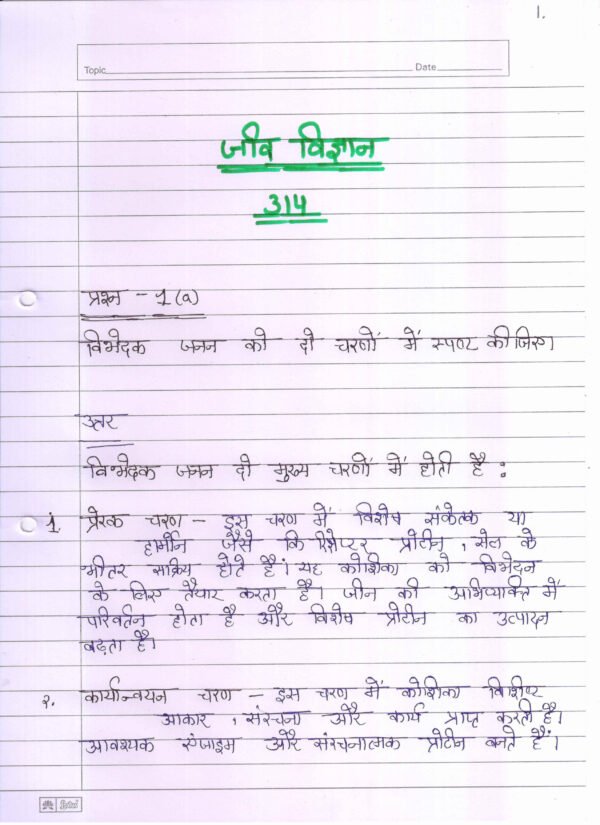 1.
Topic Date
जीव विज्ञान
314
प्रश्न - 1(a)
विभेदक जनन को दो चरणों में स्पष्ट कीजिए।
उत्तर
विभेदक जनन दो मुख्य चरणों में होती है :
1. प्रेरक चरण - इस चरण में विशेष संकेतक या
हार्मोन जैसे कि रिसेप्टर प्रोटीन, सेल के
भीतर सक्रिय होते हैं। यह कोशिका को विभेदन
के लिए तैयार करता है। जीन की अभिव्यक्ति में
परिवर्तन होता है और विशेष प्रोटीन का उत्पादन
बढ़ता है।
२. कार्यान्वयन चरण - इस चरण में कोशिका विशिष्ट
आकार, संरचना और कार्य प्राप्त करती है।
आवश्यक एंजाइम और संरचनात्मक प्रोटीन बनते हैं।